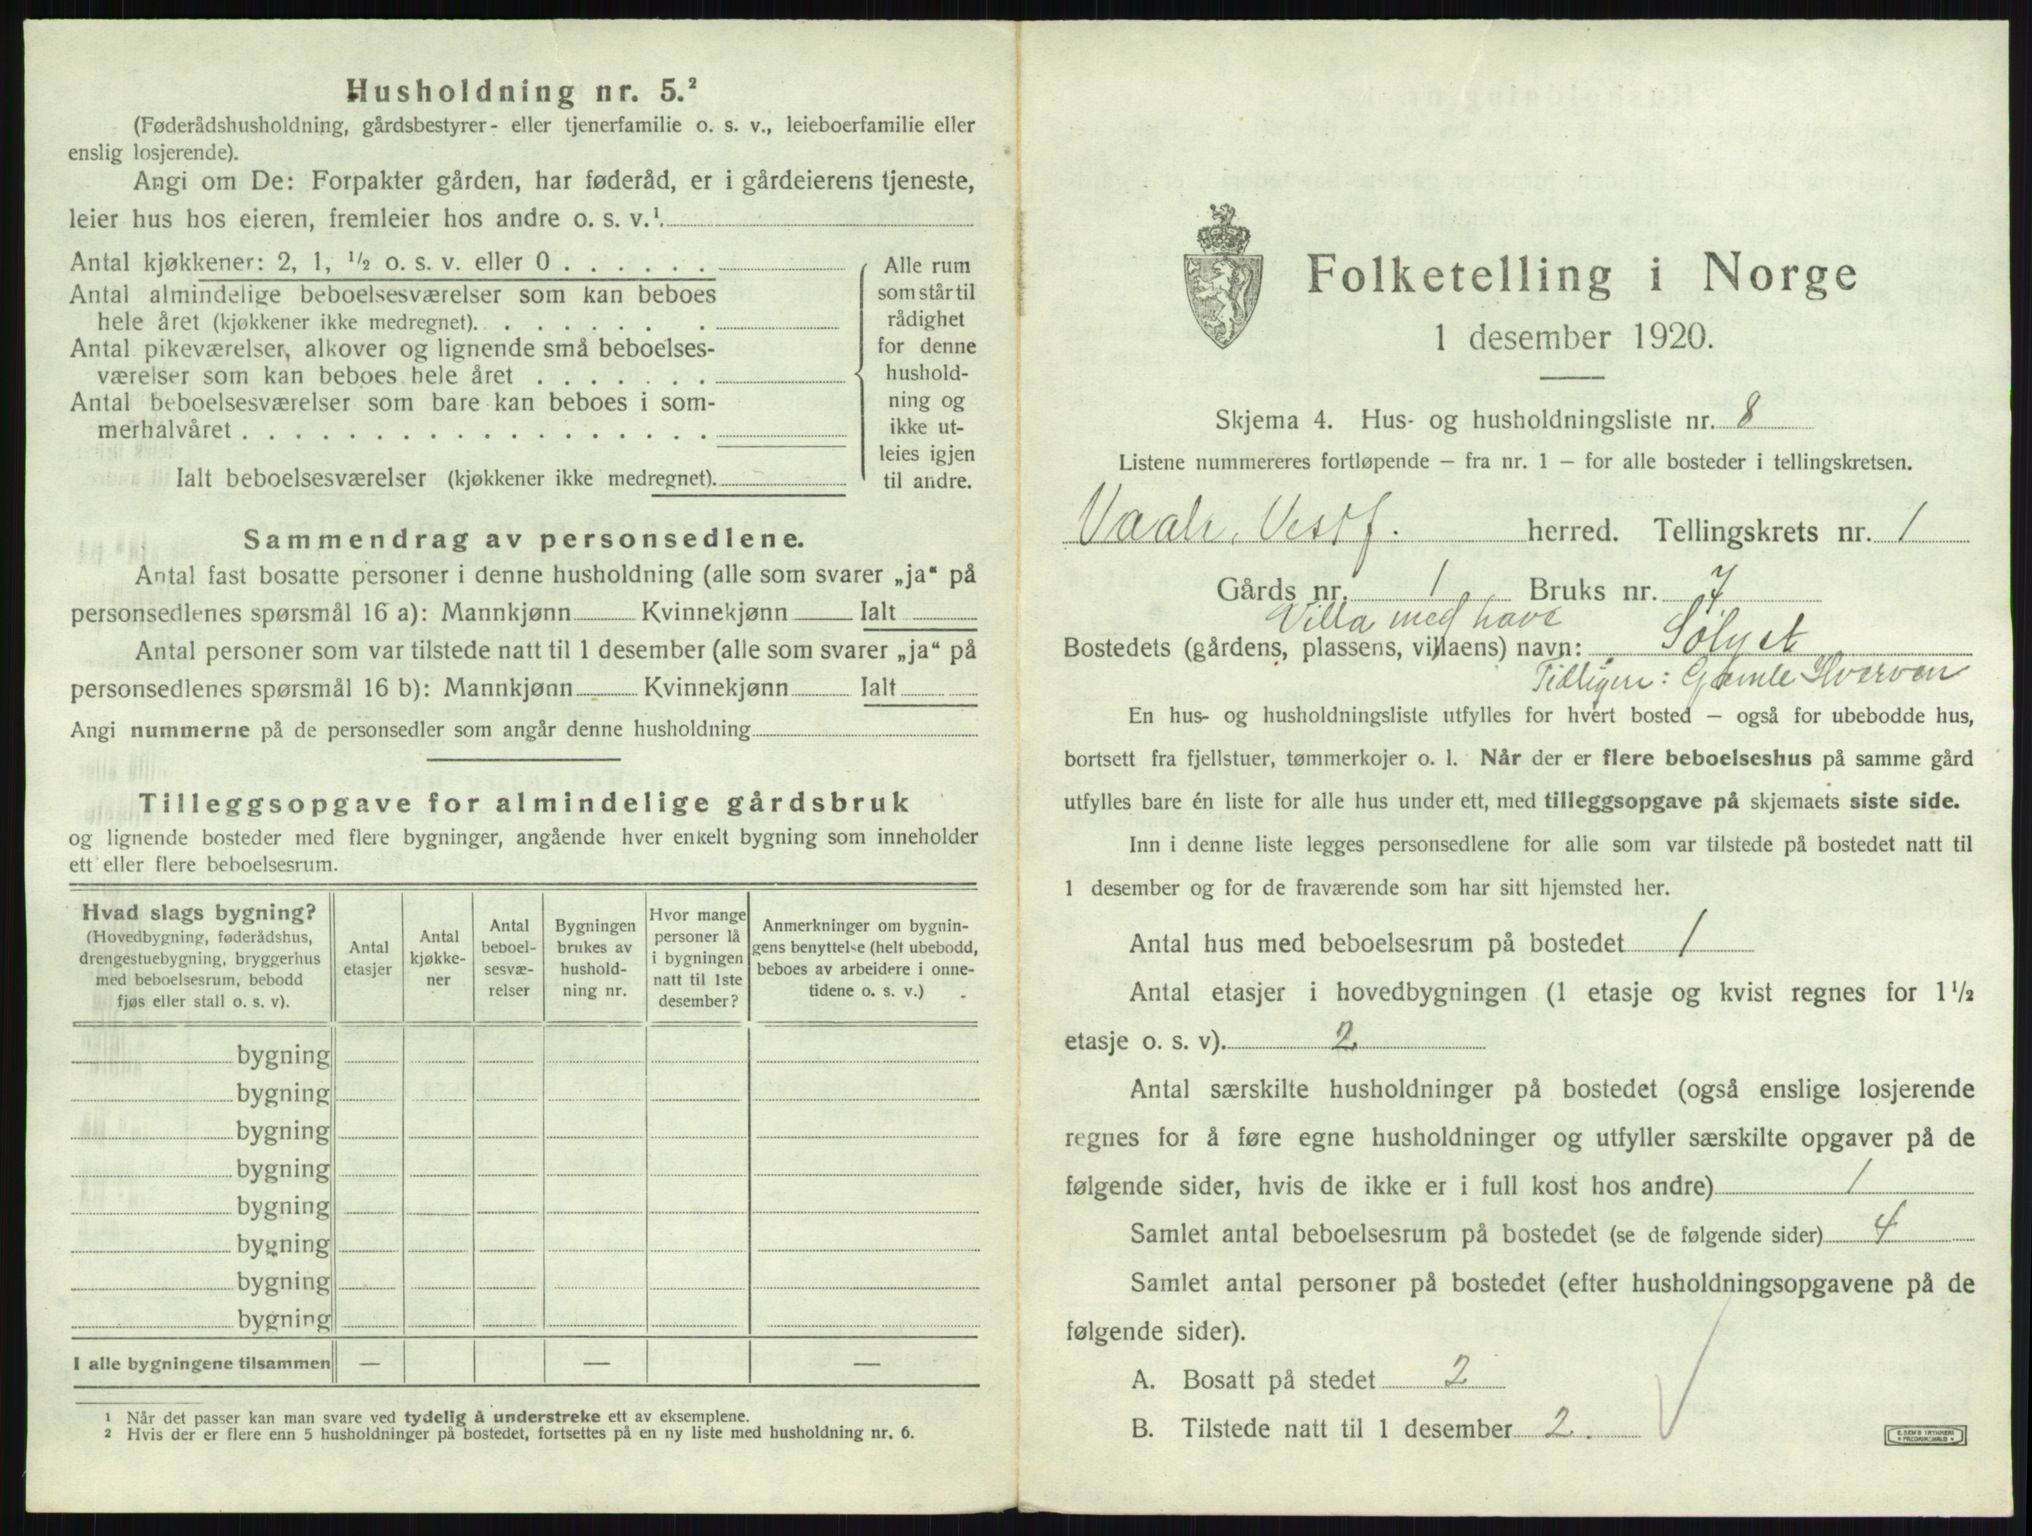 Husholdning nr. 5.²
(Føderådshusholdning, gårdsbestyrer- eller tjenerfamilie o. s. v., leieboerfamilie eller
enslig losjerende).
Angi om De: Forpakter gården, har føderåd, er i gårdeierens tjeneste,
leier hus hos eieren, fremleier hos andre o. s. v.¹
Antal kjøkkener: 2, 1, ½ o. s. v. eller 0
Antal almindelige beboelsesværelser som kan beboes
hele året (kjøkkener ikke medregnet).
Antal pikeværelser, alkover og lignende små beboelses-
værelser som kan beboes hele året
Antal beboelsesværelser som bare kan beboes i som-
merhalvåret
Ialt beboelsesværelser (kjøkkener ikke medregnet).
Alle rum
som står til
rådighet
for denne
hushold-
ning og
ikke ut-
leies igjen
til andre.
Sammendrag av personsedlene.
Antal fast bosatte personer i denne husholdning (alle som svarer „ja“ på
personsedlenes spørsmål 16 a): Mannkjønn Kvinnekjønn Ialt
Antal personer som var tilstede natt til 1 desember (alle som svarer „ja“ på
personsedlenes spørsmål 16 b): Mannkjønn Kvinnekjønn Ialt
Angi nummerne på de personsedler som angår denne husholdning
Tilleggsopgave for almindelige gårdsbruk
og lignende bosteder med flere bygninger, angående hver enkelt bygning som inneholder
ett eller flere beboelsesrum.
Hvad slags bygning?
(Hovedbygning, føderådshus,
drengestuebygning, bryggerhus
med beboelsesrum, bebodd
fjøs eller stall o. s. v).
Antal
etasjer
Antal
kjøkke-
ner
Antal
beboel-
sesvæ-
relser
Bygningen
brukes av
hushold-
ning nr.
Hvor mange
personer lå
i bygningen
natt til 1ste
desember?
Anmerkninger om bygnin-
gens benyttelse (helt ubebodd,
beboes av arbeidere i onne-
tidene o. s. v.)
bygning
bygning
bygning
bygning
bygning
bygning
bygning
bygning
I alle bygningene tilsammen — — —
¹ Når det passer kan man svare ved tydelig å understreke ett av eksemplene.
² Hvis der er flere enn 5 husholdninger på bostedet, fortsettes på en ny liste med husholdning nr. 6.
Folketelling i Norge
1 desember 1920.
Skjema 4. Hus- og husholdningsliste nr. 8
Listene nummereres fortløpende — fra nr. 1 — for alle bosteder i tellingskretsen.
Vaale, Vestf. herred. Tellingskrets nr. 1
Gårds nr. 1 Bruks nr. 7
Villa med have
Bostedets (gårdens, plassens, villaens) navn: Sølyst
Tidligere: Gamle Hverven
En hus- og husholdningsliste utfylles for hvert bosted — også for ubebodde hus,
bortsett fra fjellstuer, tømmerkojer o. l. Når der er flere beboelseshus på samme gård
utfylles bare én liste for alle hus under ett, med tilleggsopgave på skjemaets siste side.
Inn i denne liste legges personsedlene for alle som var tilstede på bostedet natt til
1 desember og for de fraværende som har sitt hjemsted her.
Antal hus med beboelsesrum på bostedet 1
Antal etasjer i hovedbygningen (1 etasje og kvist regnes for 1½
etasje o. s. v). 2
Antal særskilte husholdninger på bostedet (også enslige losjerende
regnes for å føre egne husholdninger og utfyller særskilte opgaver på de
følgende sider, hvis de ikke er i full kost hos andre) 1
Samlet antal beboelsesrum på bostedet (se de følgende sider) 4
Samlet antal personer på bostedet (efter husholdningsopgavene på de
følgende sider).
A. Bosatt på stedet 2
B. Tilstede natt til 1 desember 2.
E. SEM'S TRYKKERI
FREDRIKSHALD